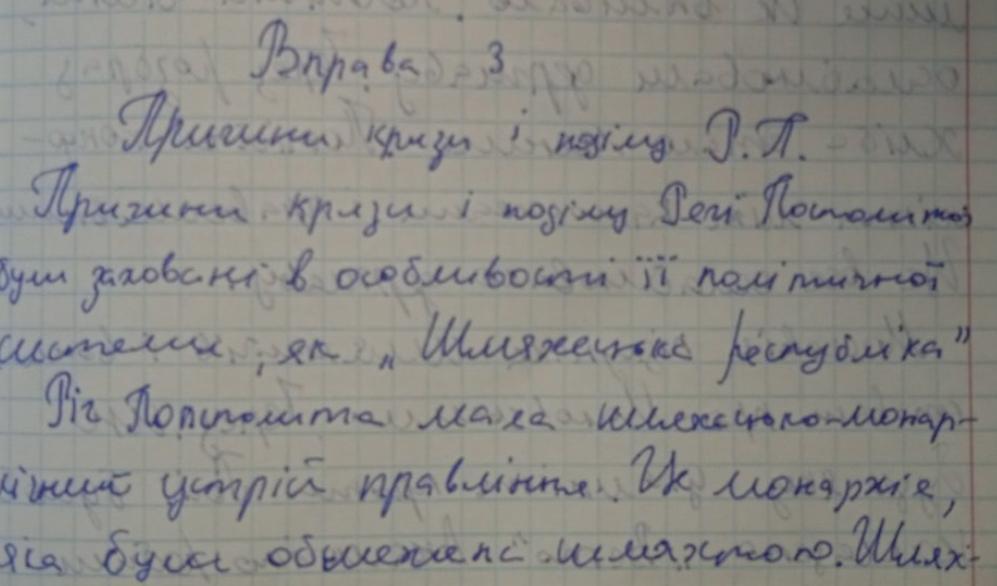 Вправа 3
Причини кризи і поділу Р.П.
Причини кризи і поділу Речі Посполитої
були заховані в особливості її політичної
системи, як „Шляхецька республіка"
Річ Посполита мала шляхецько-монар-
хічний устрій правління. Це монархія,
яка була обмежена шляхтою. Шлях-